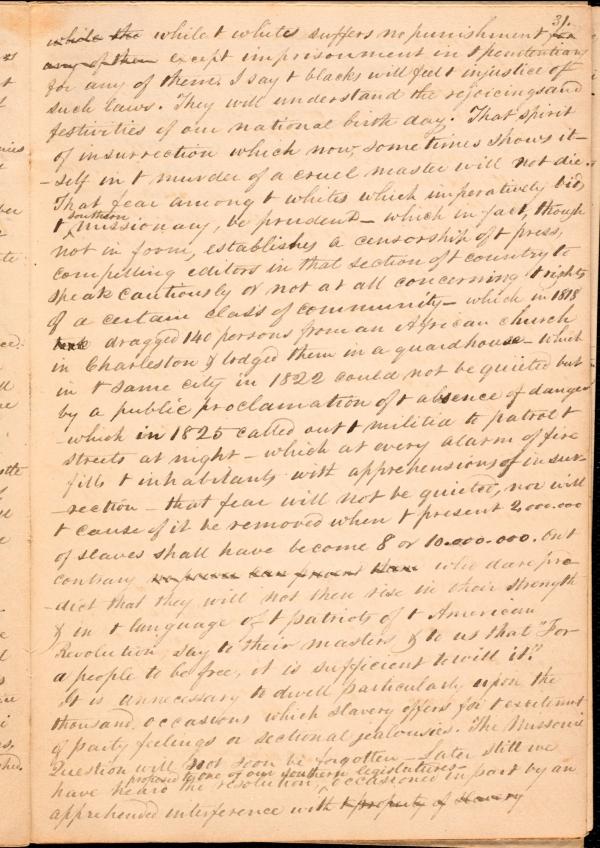 31.
while the while t white suffers no punishment for
any of them except imprisonment in t penitentiary
for any of them. I say t blacks will feel t injustice of
such laws. They will understand the rejoicings and
festivities of our national birth day. That spirit
of insurrection which now sometimes shows it-
-self in t murder of a cruel master will not die.
That fear among t whites which imperatively bids
t southern missionary, be prudent – which in fact, though
not in form, establishes a censorship of t press,
compelling editors in that section of country to
speak cautiously or not at all concerning t rights
of a certain class of community – which in 1818
dragged 140 persons from an African church
in Charleston & lodged them in a guardhouse – which
in t same city in 1822 could not be quieted but
by a public proclamation of t absence of danger
– which in 1825 called out t militia to patrol t
streets at night – which at every alarm of fire
fills t inhabitants with apprehensions of insur-
-rection – that fear will not be quieted, nor will
t cause of it be removed when t present 2,000.000
of slaves shall have become 8 or 10.000.000. On t
contrary who dare pre
-dict that they will not then rise in their strength
& in t language of t patriots of t American
Revolution, say to their masters & to us that "For
a people to be free, it is sufficient to will it."
It is unnecessary to dwell particularly upon the
thousand occasions which slavery offers for t excitement
of party feelings or sectional jealousies. The Missouri
Question will not soon be forgotten – Later still we
have heard the resolution, proposed to one of our southern legislatures – occasioned in part by an
apprehended interference with t property of slavery